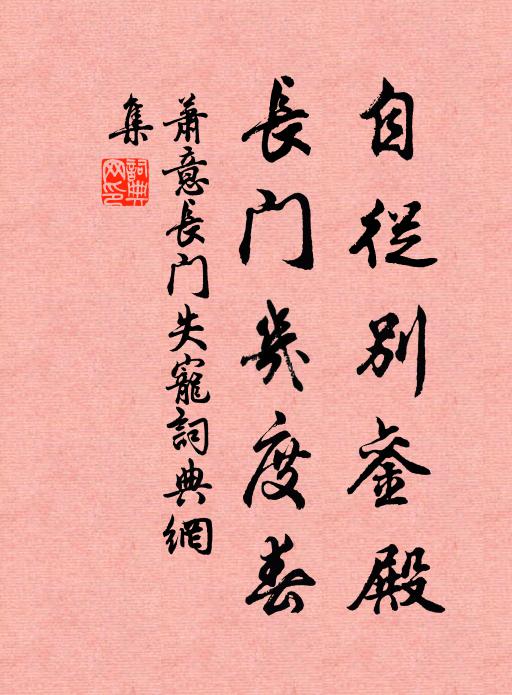 自從別銮殿
長门幾度春
蕭意長门失寵詞典網
集
詞典
网印